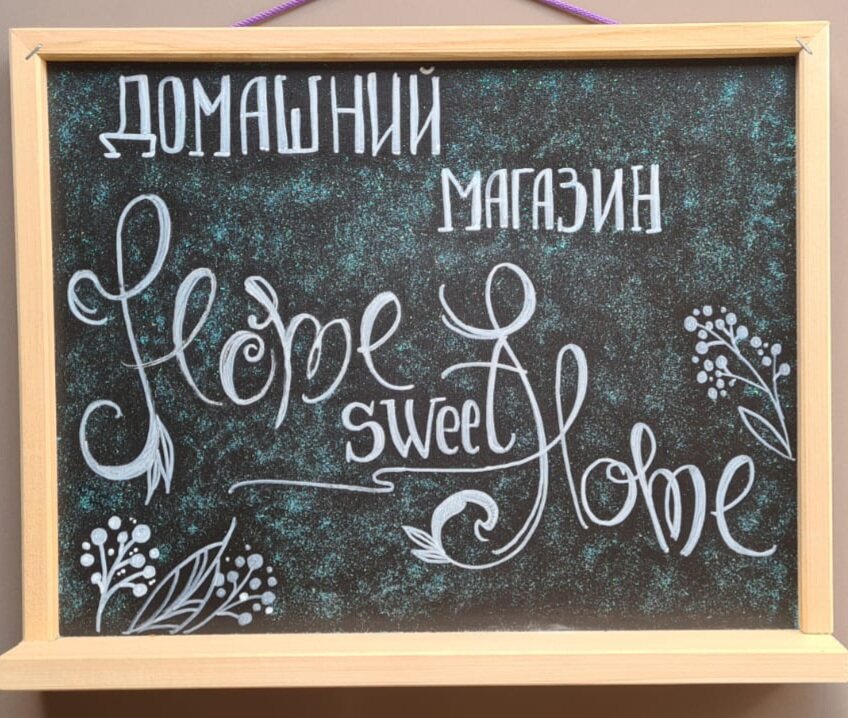 ДОМАШНИЙ
МАГАЗИН
Home
sweet
Home